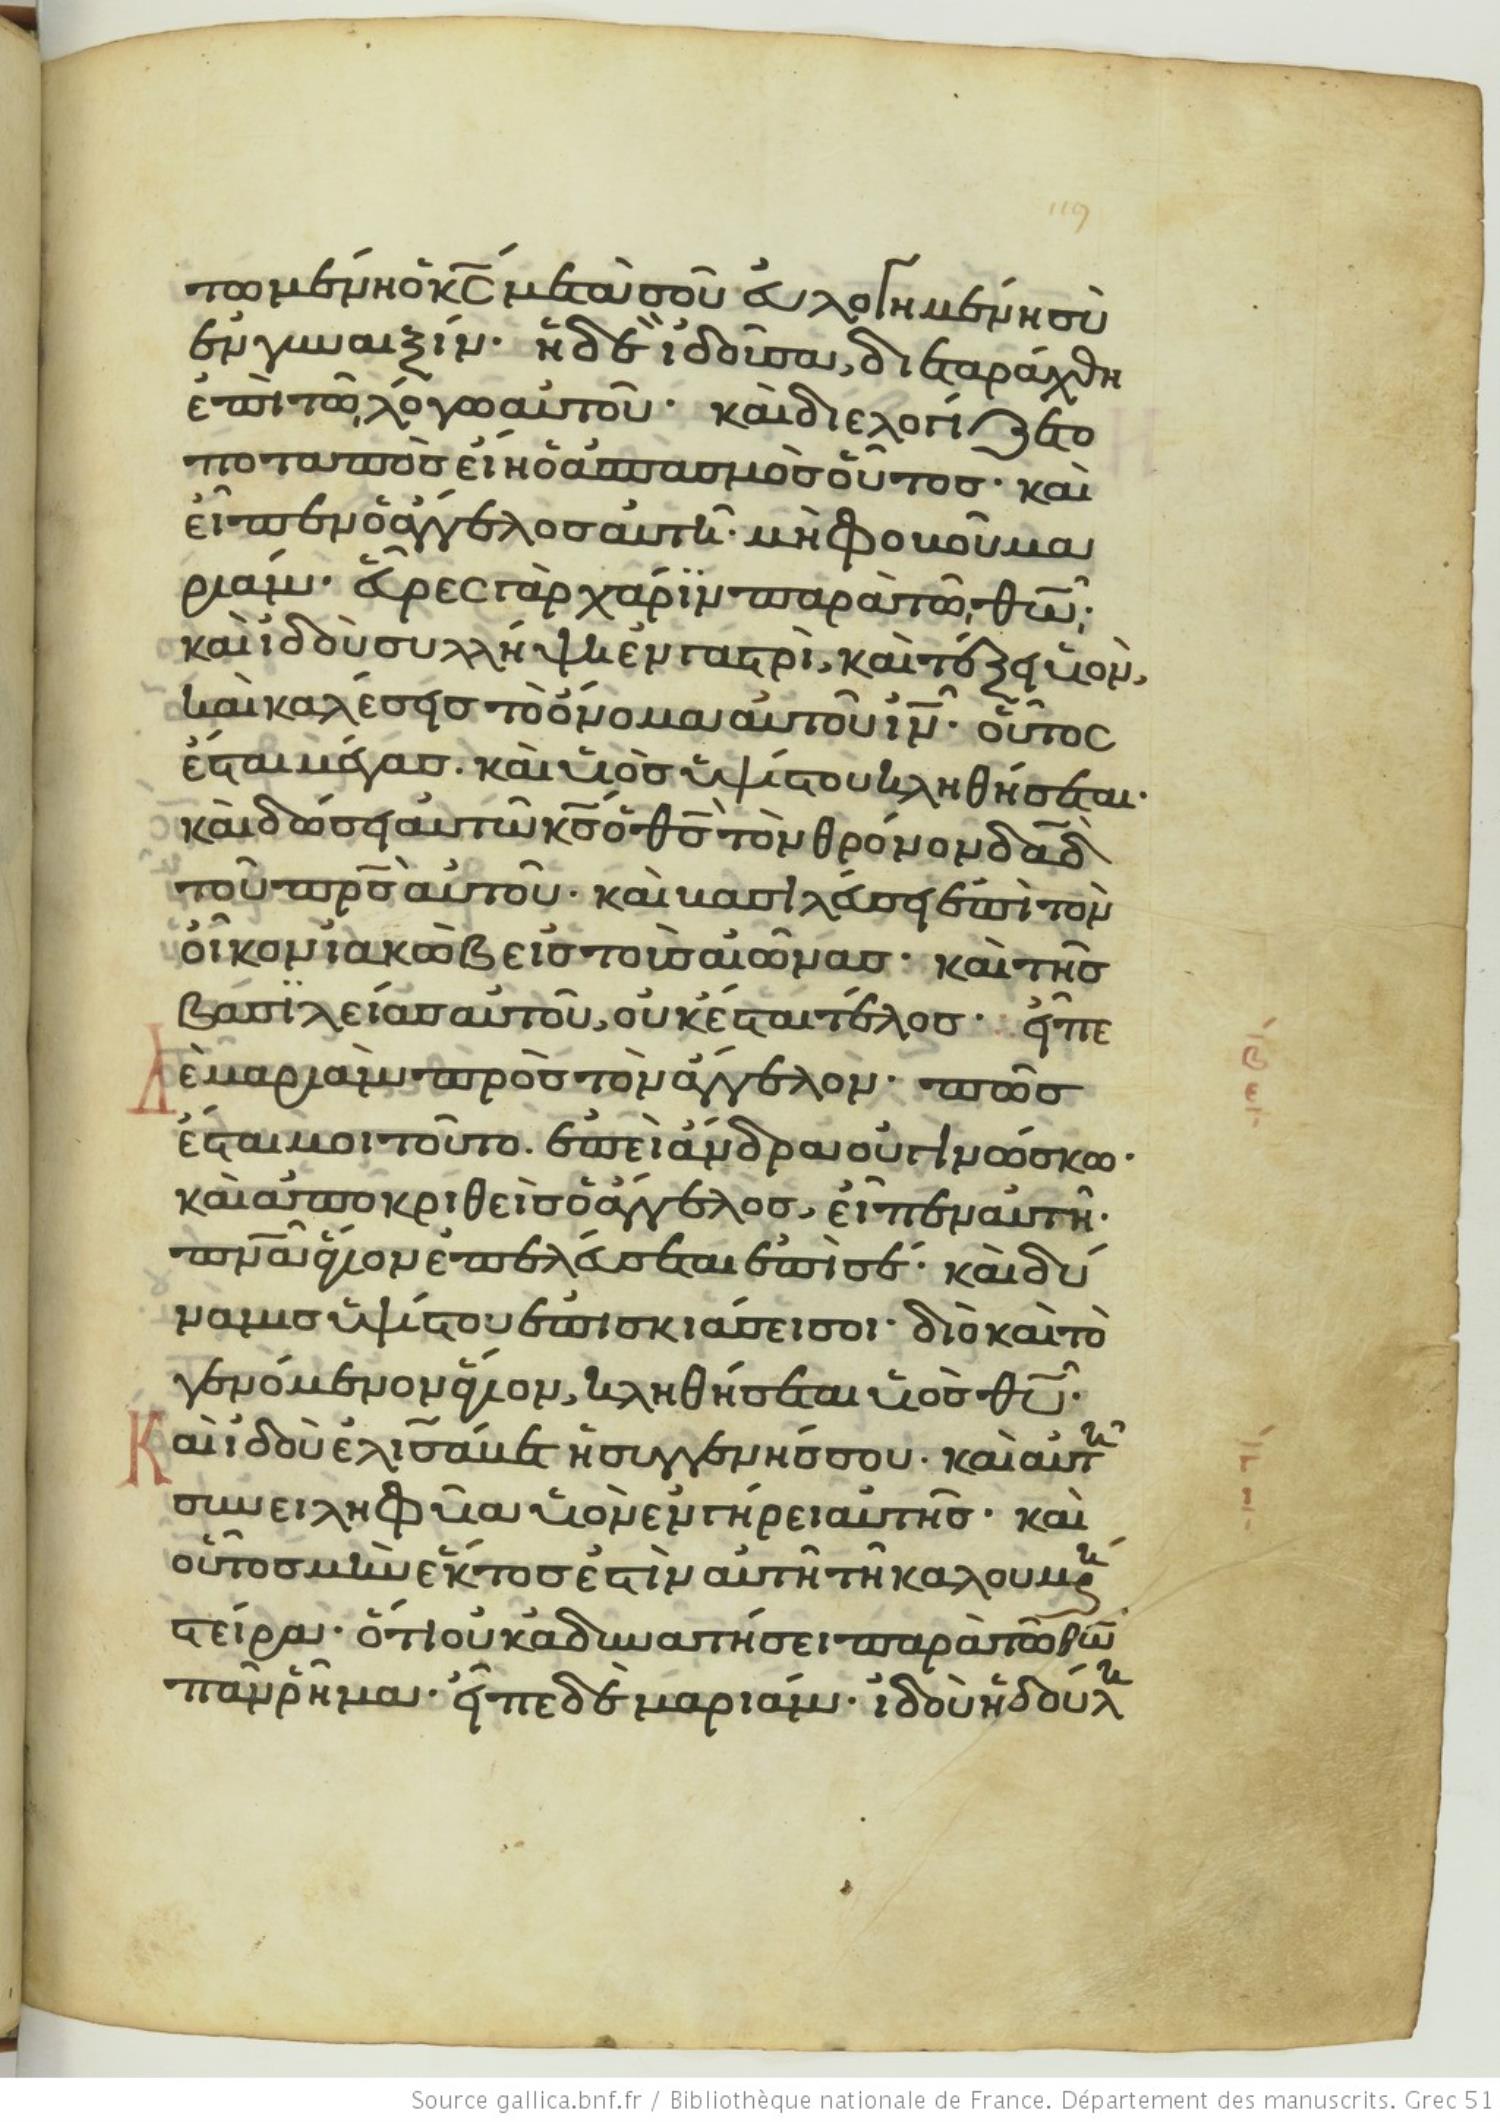 119
τωμένη ὁ κ̅ς̅ μετὰ σοῦ εὐλογημένη σὺ
ἐν γυναιξίν· ἡ δὲ ἰδοῦσα, διεταράχθη
ἐπὶ τῶ λόγω αὐτοῦ· καὶ διελογίζετο
ποταπὸς εἴη ὁ ἀσπασμὸς οὗτος· καὶ
εἶπεν ὁ ἄγγελος αὐτῆ· μὴ φοβοῦ μα
ριάμ· εὗρες γὰρ χάρϊν παρὰ τῶ θ̅ω̅·
καὶ ἰδοὺ συλλήψη ἐν γαστρὶ, καὶ τέξει υἱὸν,
καὶ καλέσεις τὸ ὄνομα αὐτοῦ ι̅ν̅· οὗτος
ἔσται μέγας· καὶ υἱὸς ὑψίστου κληθήσεται·
καὶ δώσει αὐτῶ κ̅ς̅ ὁ θ̅ς̅ τὸν θρόνον δ̅α̅δ̅
τοῦ π̅ρ̅ς̅ αὐτοῦ· καὶ βασιλεύσει ἐπὶ τὸν
οἶκον ἰακὼβ εἰς τοὺς αἰῶνας· καὶ τῆς
βασϊλείας αὐτοῦ, οὐκ ἔσται τέλος· εἶπε
Δὲ μαριὰμ πρὸς τὸν ἄγγελον· πῶς
ἔσται μοι τοῦτο· ἐπεὶ ἄνδρα οὐ γινώσκω·
καὶ ἀποκριθεὶς ὁ ἄγγελος, εἶπεν αὐτῆ·
π̅ν̅α̅ ἅγιον ἐπελεύσεται ἐπὶ σέ· καὶ δύ
ναμις ὑψίστου ἐπισκιάσει σοι· διὸ καὶ τὸ
γενόμενον ἅγιον, κληθήσεται υἱὸς θ̅υ̅·
Καὶ ἰδοὺ ἐλισάβετ ἡ συγγενής σου· καὶ αὐτὴ
συνειληφυῖα υἱὸν ἐν γήρει αὐτῆς· καὶ
οὗτος μὴν ἕκτος ἐστὶν αὐτῆ τῆ καλουμένη
στείρα· ὅτι οὐκ ἀδυνατήσει παρὰ τῶ θ̅ω̅
πᾶν ῥῆμα· εἶπε δὲ μαριάμ· ἰδοὺ ἡ δούλη